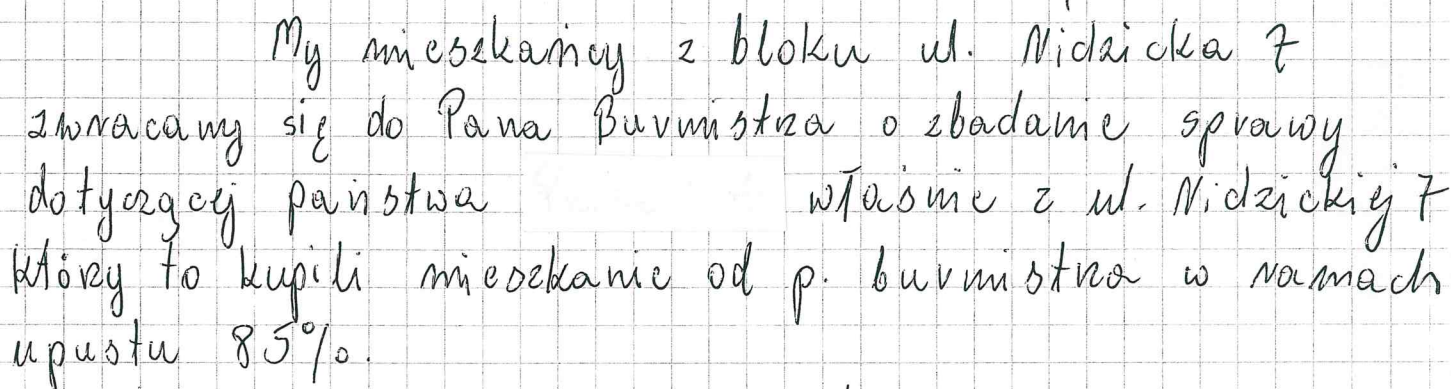 My mieszkańcy z bloku ul. Nidzicka 7
zwracamy się do Pana Burmistrza o zbadanie sprawy
dotyczącej państwa właśnie z ul. Nidzickiej 7
którzy to kupili mieszkanie od p. burmistrza w ramach
upustu 85%.